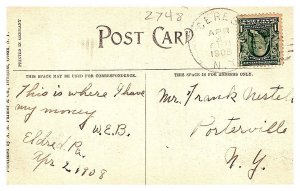 2748
POST CARD
CERES
APR
1908
N.Y.
THIS SPACE MAY BE USED FOR CORRESPONDENCE.
THIS SPACE IS FOR ADDRESS ONLY.
This is where I have
my money
W.E.B.
Eldred Pa.
Apr 2, 1908
Mr. Frank Nestel
Porterville
N.Y.